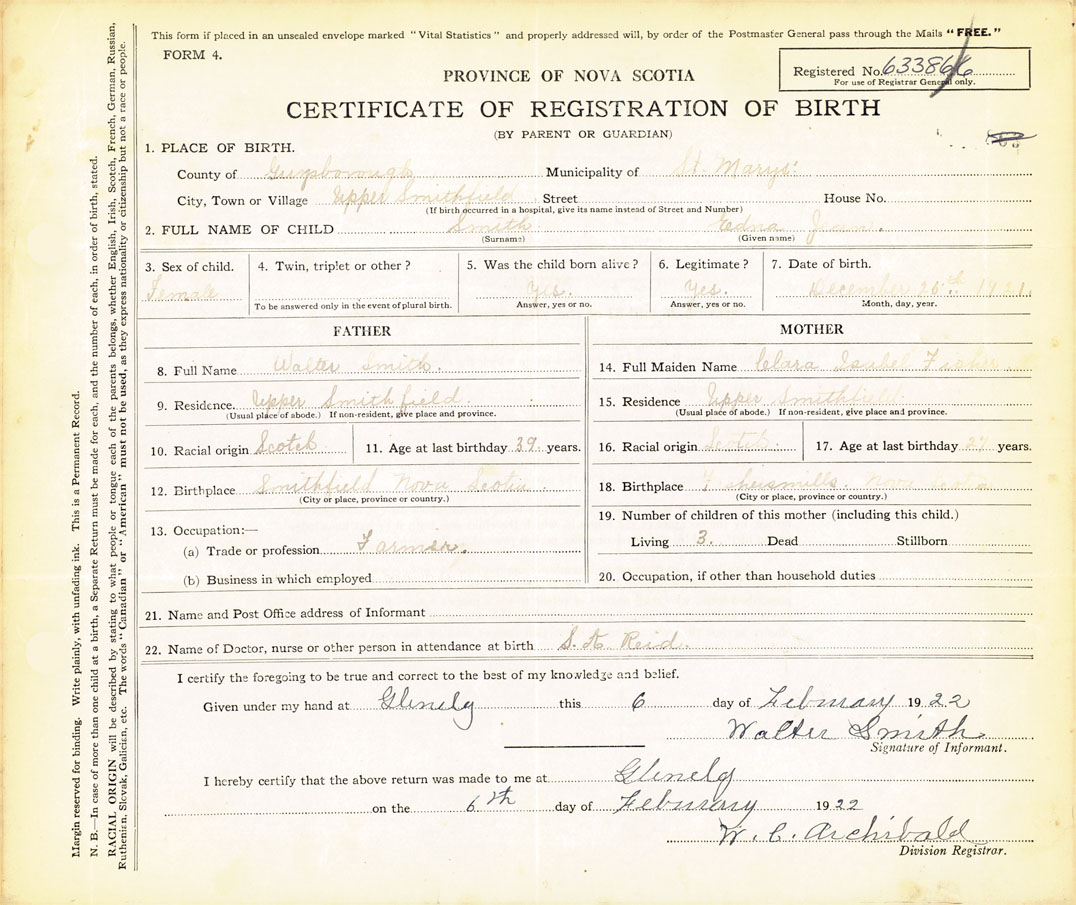 This form if placed in an unsealed envelope marked "Vital Statistics" and properly addressed will, by order of the Postmaster General pass through the Mails "FREE."
FORM 4.
Registered No. 633866
For use of Registrar General only.
PROVINCE OF NOVA SCOTIA
CERTIFICATE OF REGISTRATION OF BIRTH
(BY PARENT OR GUARDIAN)
1. PLACE OF BIRTH.
County of Guysborough Municipality of St. Marys
City, Town or Village Upper Smithfield Street House No.
(If birth occurred in a hospital, give its name instead of Street and Number)
2. FULL NAME OF CHILD Smith Edna Jean.
(Surname) (Given name)
3. Sex of child. 4. Twin, triplet or other? 5. Was the child born alive? 6. Legitimate? 7. Date of birth.
Female Yes. Yes. December 26th 1921.
To be answered only in the event of plural birth. Answer, yes or no. Answer, yes or no. Month, day, year.
FATHER
8. Full Name Walter Smith.
9. Residence. Upper Smithfield.
(Usual place of abode.) If non-resident, give place and province.
10. Racial origin Scotch 11. Age at last birthday 39 years.
12. Birthplace Smithfield Nova Scotia
(City or place, province or country.)
13. Occupation:—
(a) Trade or profession Farmer.
(b) Business in which employed
MOTHER
14. Full Maiden Name Clara Isabel Fisher
15. Residence Upper Smithfield
(Usual place of abode.) If non-resident, give place and province.
16. Racial origin Scotch 17. Age at last birthday 27 years.
18. Birthplace Fishersmills. Nova Scotia
(City or place, province or country.)
19. Number of children of this mother (including this child.)
Living 3. Dead Stillborn
20. Occupation, if other than household duties
21. Name and Post Office address of Informant
22. Name of Doctor, nurse or other person in attendance at birth S. A. Reid.
I certify the foregoing to be true and correct to the best of my knowledge and belief.
Given under my hand at Glenelg this 6 day of February 1922
Walter Smith
Signature of Informant.
I hereby certify that the above return was made to me at Glenelg
on the 6th day of February 1922
W. C. Archibald
Division Registrar.
Margin reserved for binding. Write plainly, with unfading ink. This is a Permanent Record.
N. B.—In case of more than one child at a birth, a Separate Return must be made for each, and the number of each, in order of birth, stated.
RACIAL ORIGIN will be described by stating to what people or tongue each of the parents belongs, whether English, Irish, Scotch, French, German, Russian,
Ruthenian, Slovak, Galician, etc. The words "Canadian" or "American" must not be used, as they express nationality or citizenship but not a race or people.